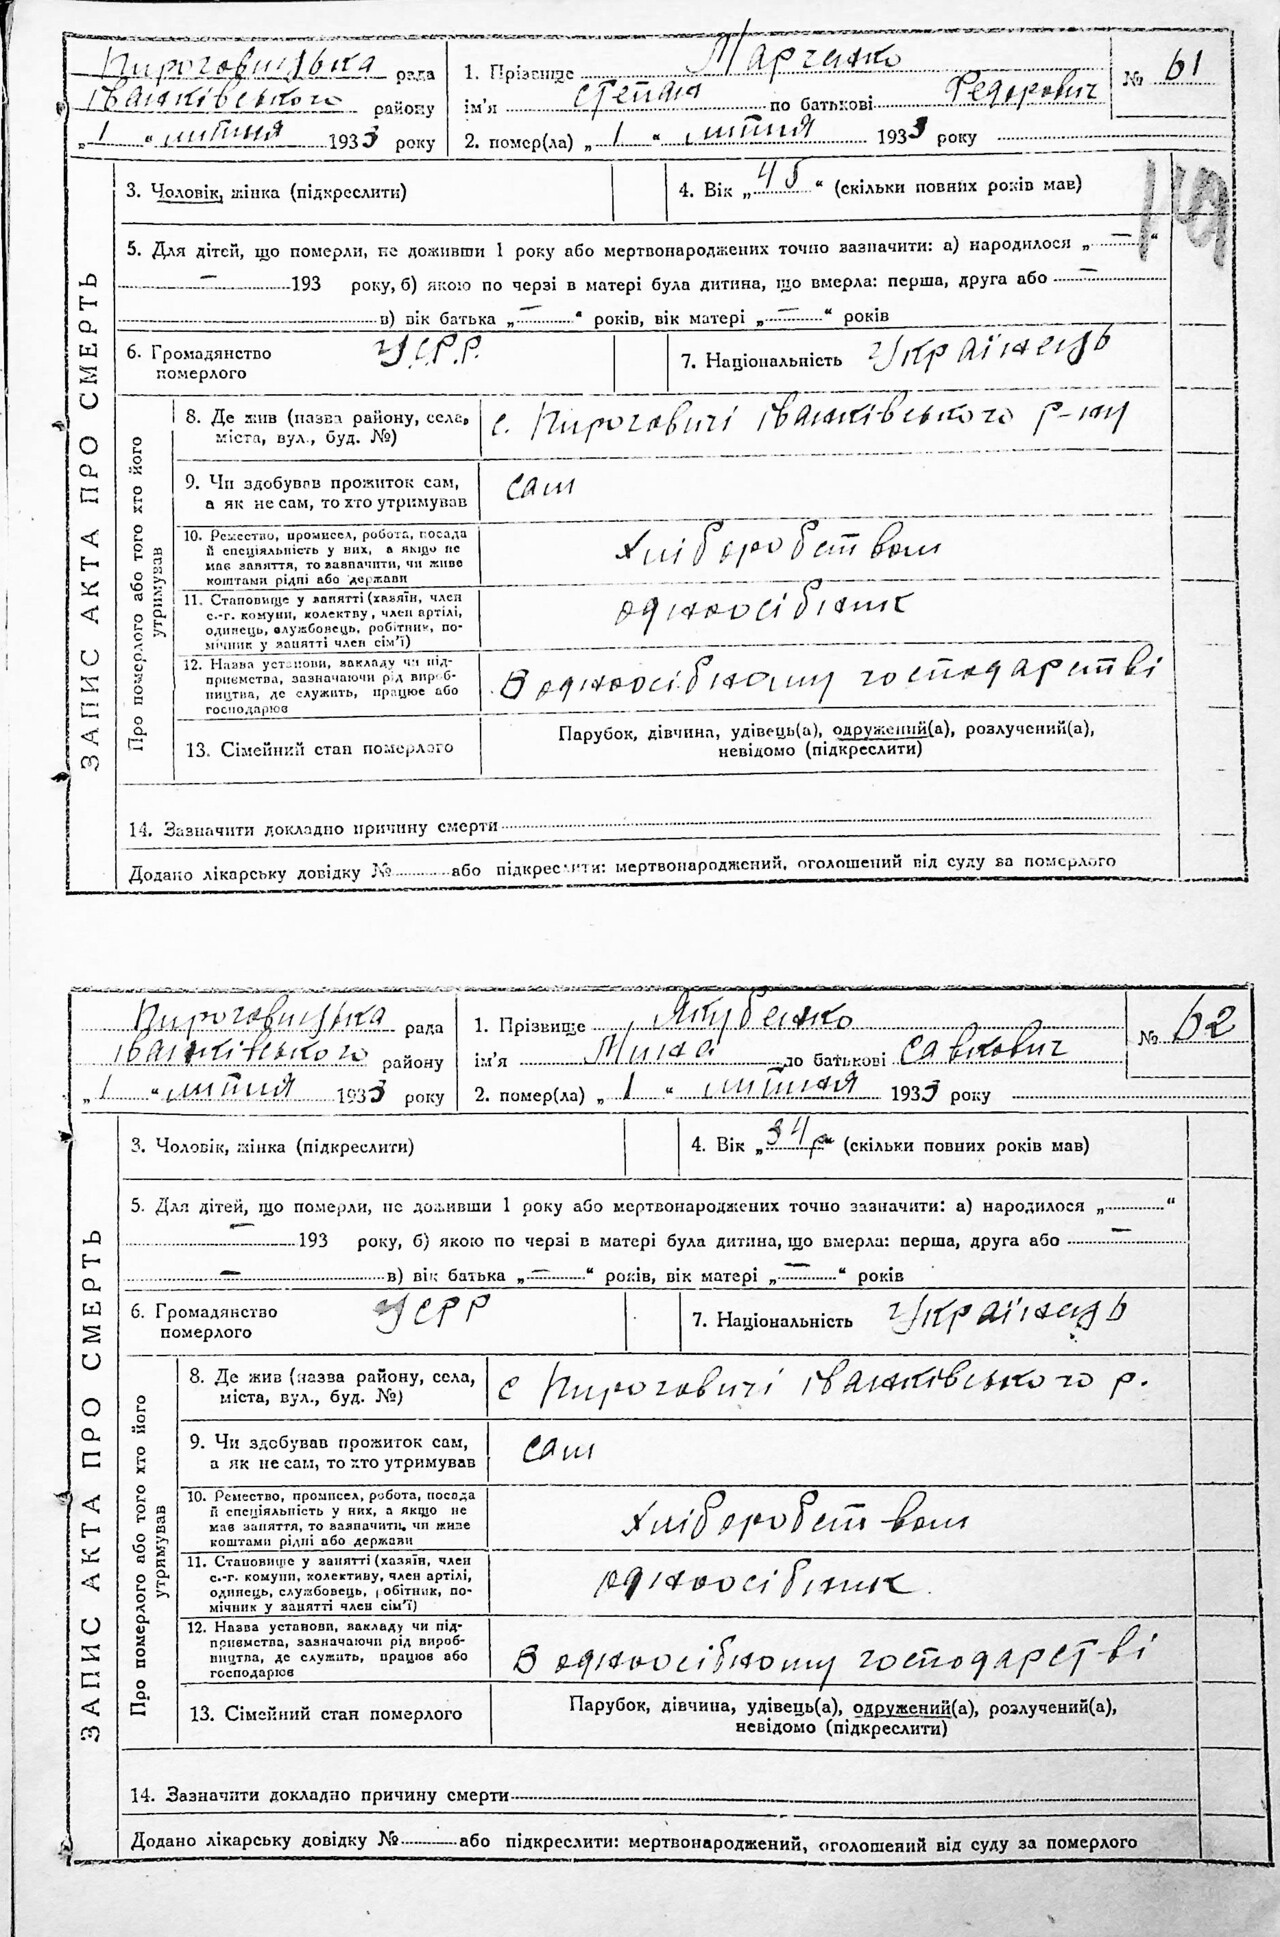 Пироговицька рада
Іванківського району
„1“ липня 1933 року
1. Прізвище Марченко
ім’я степан по батькові Федорович
2. помер(ла) „1“ липня 1933 року
№ 61
3. Чоловік, жінка (підкреслити)
4. Вік „45“ (скільки повних років мав)
5. Для дітей, що померли, не доживши 1 року або мертвонароджених точно зазначити: а) народилося „—“
— 193 року, б) якою по черзі в матері була дитина, що вмерла: перша, друга або —
в) вік батька „—“ років, вік матері „—“ років
6. Громадянство померлого У.С.Р.Р.
7. Національність Українець
ЗАПИС АКТА ПРО СМЕРТЬ
Про померлого або того хто його утримував
8. Де жив (назва району, села,
міста, вул., буд. №)
с. Пироговичі іванківського р-ну
9. Чи здобував прожиток сам,
а як не сам, то хто утримував
сам
10. Ремество, промисел, робота, посада
й спеціяльність у них, а якщо не
має заняття, то зазначити, чи живе
коштами рідні або держави
хліборобством
11. Становище у занятті (хазяїн, член
с.-г. комуни, колективу, член артілі,
одинець, службовець, робітник, по-
мічник у занятті член сім’ї)
одноосібник
12. Назва установи, закладу чи під-
приємства, зазначаючи рід вироб-
ництва, де служить, працює або
господарює
В одноосібному господарстві
13. Сімейний стан померлого
Парубок, дівчина, удівець(а), одружений(а), розлучений(а),
невідомо (підкреслити)
14. Зазначити докладно причину смерти
Додано лікарську довідку № або підкреслити: мертвонароджений, оголошений від суду за померлого
Пироговицька рада
іванківського району
„1“ липня 1933 року
1. Прізвище Якубенко
ім’я Мина по батькові савкович
2. помер(ла) „1“ липня 1933 року
№ 62
3. Чоловік, жінка (підкреслити)
4. Вік „34р“ (скільки повних років мав)
5. Для дітей, що померли, не доживши 1 року або мертвонароджених точно зазначити: а) народилося „“
— 193 року, б) якою по черзі в матері була дитина, що вмерла: перша, друга або —
— в) вік батька „—“ років, вік матері „—“ років
6. Громадянство померлого УСРР
7. Національність Українець
ЗАПИС АКТА ПРО СМЕРТЬ
Про померлого або того хто його утримував
8. Де жив (назва району, села,
міста, вул., буд. №)
с Пироговичі іванківського р.
9. Чи здобував прожиток сам,
а як не сам, то хто утримував
сам
10. Ремество, промисел, робота, посада
й спеціяльність у них, а якщо не
має заняття, то зазначити, чи живе
коштами рідні або держави
Хліборобством
11. Становище у занятті (хазяїн, член
с.-г. комуни, колективу, член артілі,
одинець, службовець, робітник, по-
мічник у занятті член сім’ї)
одноосібник
12. Назва установи, закладу чи під-
приємства, зазначаючи рід вироб-
ництва, де служить, працює або
господарює
В одноосібному господарстві
13. Сімейний стан померлого
Парубок, дівчина, удівець(а), одружений(а), розлучений(а),
невідомо (підкреслити)
14. Зазначити докладно причину смерти
Додано лікарську довідку № або підкреслити: мертвонароджений, оголошений від суду за померлого